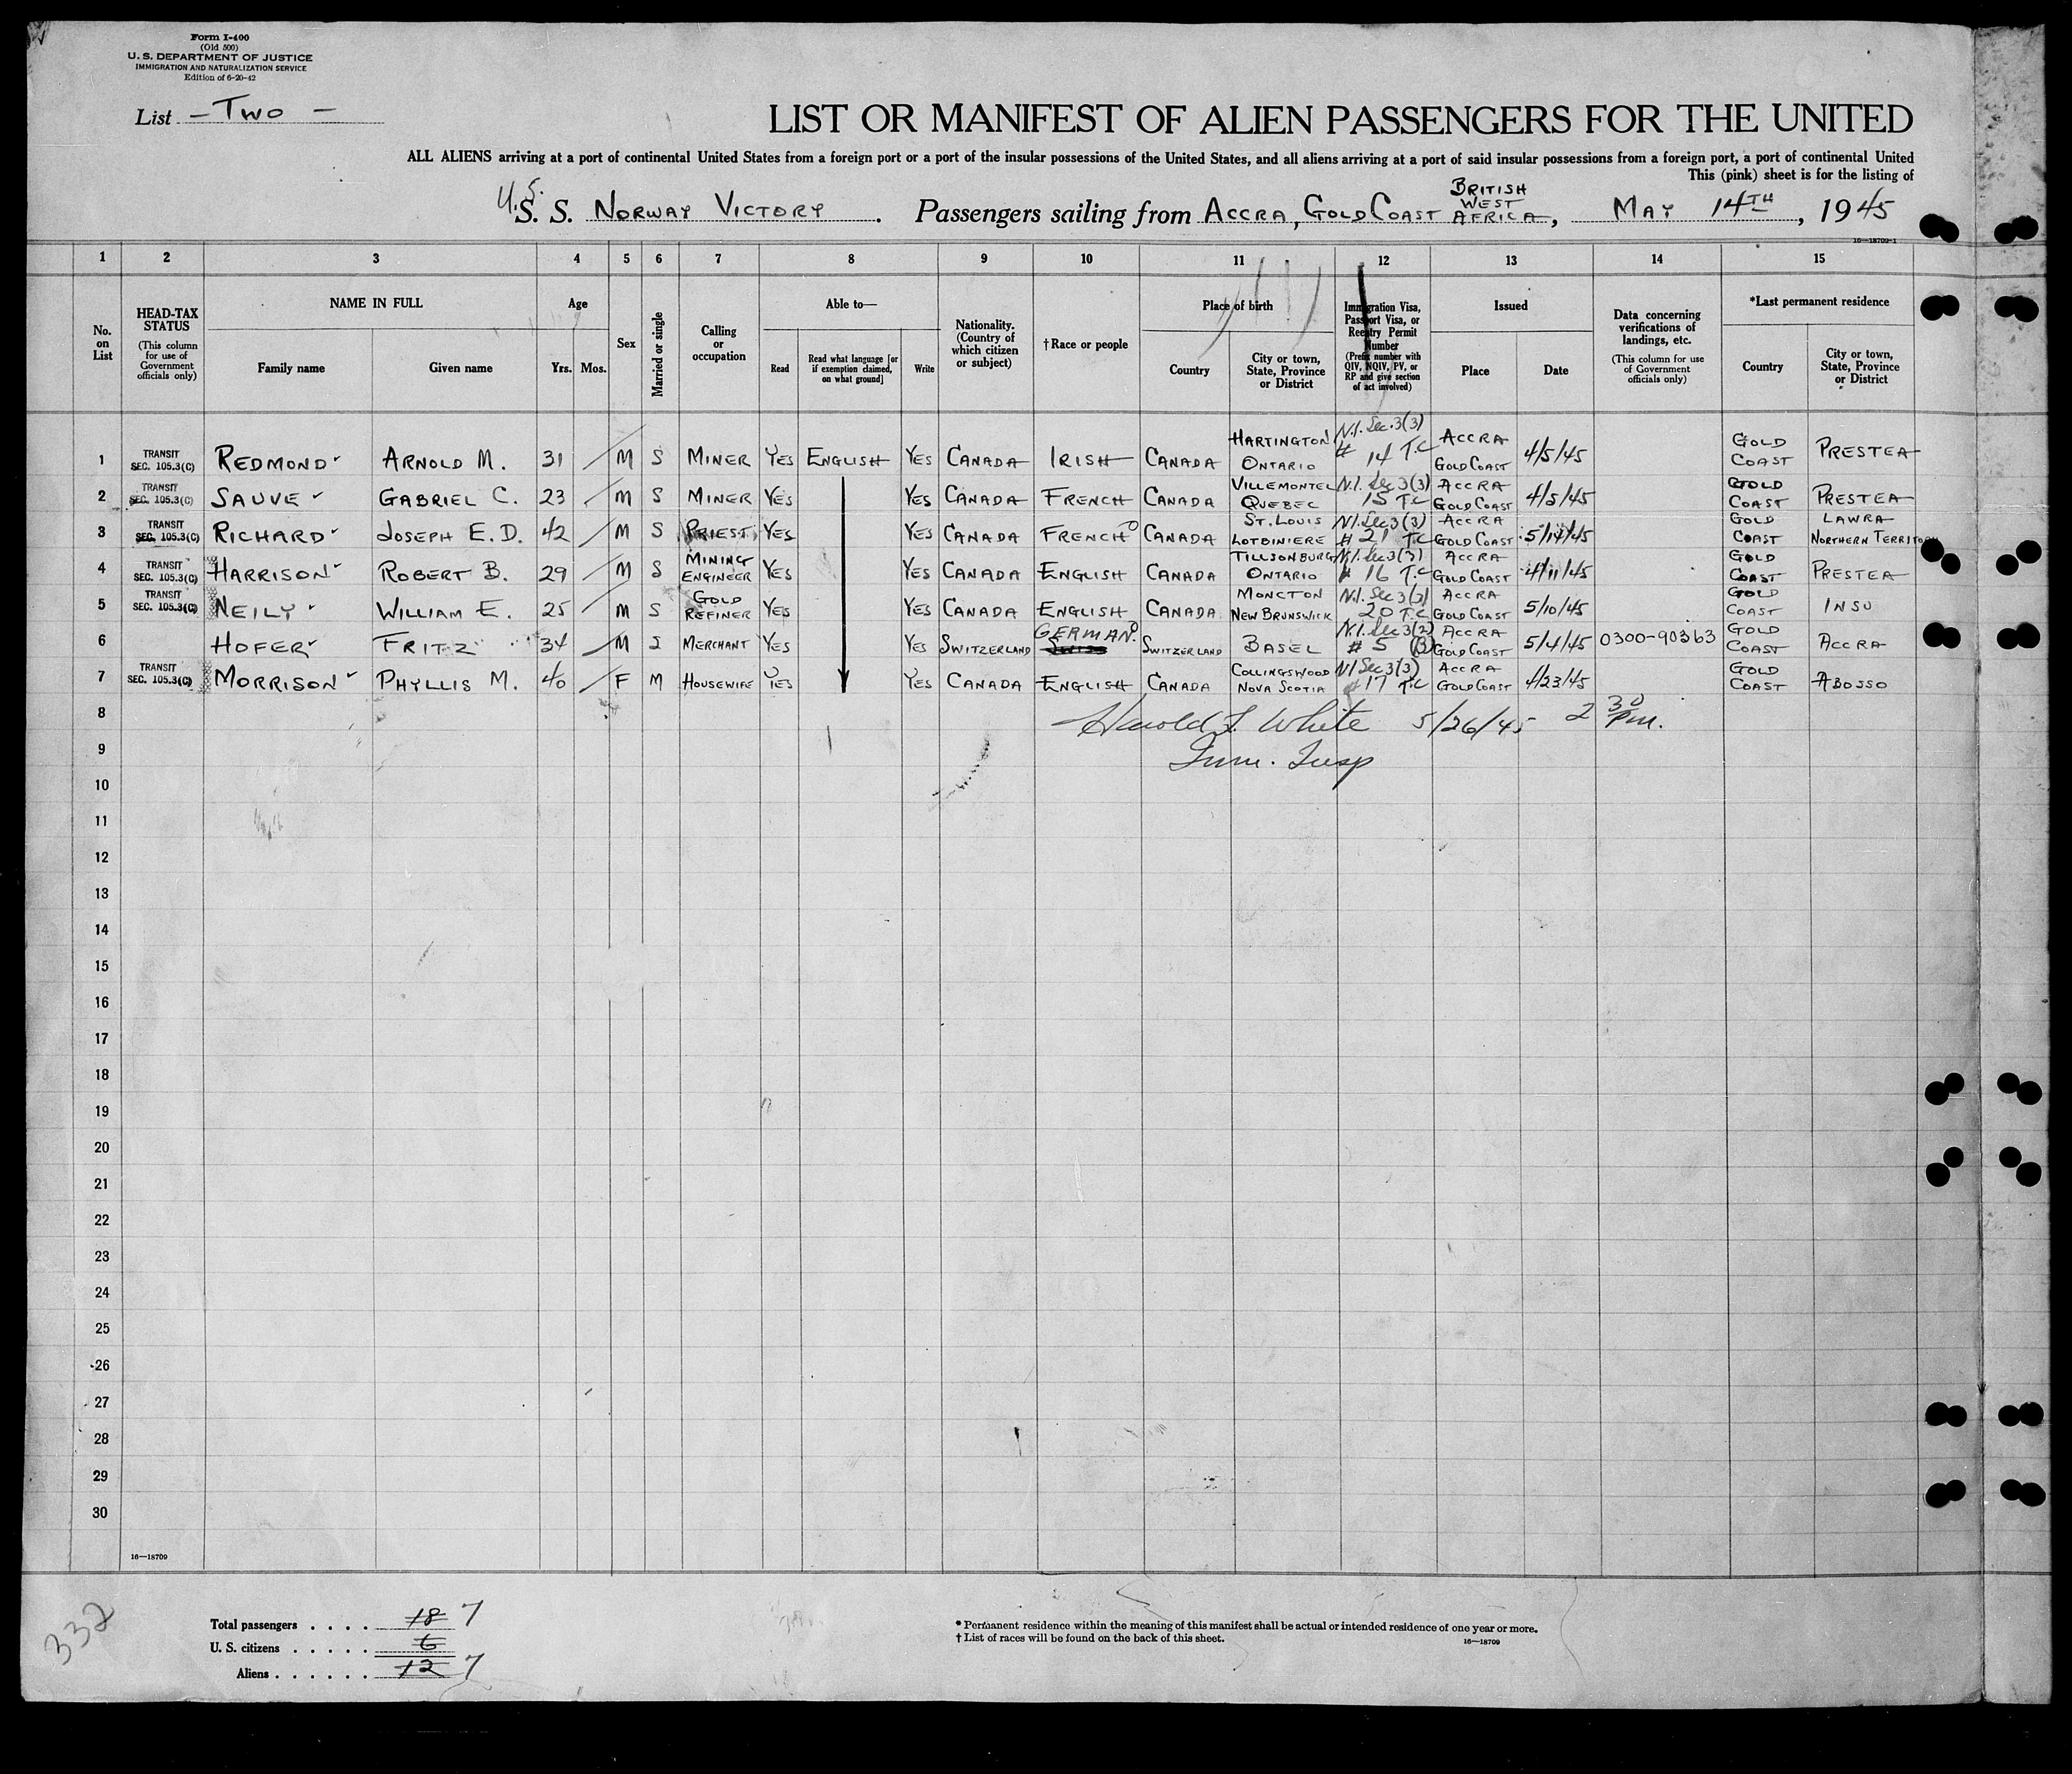 Form I-400
(Old 500)
U. S. DEPARTMENT OF JUSTICE
IMMIGRATION AND NATURALIZATION SERVICE
Edition of 6-20-42
List - Two -
LIST OR MANIFEST OF ALIEN PASSENGERS FOR THE UNITED
ALL ALIENS arriving at a port of continental United States from a foreign port or a port of the insular possessions of the United States, and all aliens arriving at a port of said insular possessions from a foreign port, a port of continental United
This (pink) sheet is for the listing of
U.S. S. S. NORWAY VICTORY. Passengers sailing from ACCRA, GOLD COAST BRITISH WEST AFRICA, MAY 14TH, 1945
16—18709-1
1 2 3 4 5 6 7 8 9 10 11 12 13 14 15
No. on List
HEAD-TAX STATUS (This column for use of Government officials only)
NAME IN FULL
Family name
Given name
Age
Yrs. Mos.
Sex
Married or single
Calling or occupation
Able to—
Read
Read what language [or if exemption claimed, on what ground]
Write
Nationality. (Country of which citizen or subject)
†Race or people
Place of birth
Country
City or town, State, Province or District
Immigration Visa, Passport Visa, or Reentry Permit Number (Prefix number with QIV, NQIV, PV, or RP and give section of act involved)
Issued
Place
Date
Data concerning verifications of landings, etc. (This column for use of Government officials only)
*Last permanent residence
Country
City or town, State, Province or District
1 TRANSIT SEC. 105.3(C) REDMOND ARNOLD M. 31 M S MINER YES ENGLISH YES CANADA IRISH CANADA HARTINGTON ONTARIO N.I. Sec. 3(3) # 14 T.C ACCRA GOLD COAST 4/5/45 GOLD COAST PRESTEA
2 TRANSIT SEC. 105.3(C) SAUVE GABRIEL C. 23 M S MINER YES YES CANADA FRENCH CANADA VILLEMONTEL QUEBEC N.I. Sec 3(3) 15 T.C ACCRA GOLD COAST 4/5/45 GOLD COAST PRESTEA
3 TRANSIT SEC. 105.3(C) RICHARD JOSEPH E. D. 42 M S PRIEST YES YES CANADA FRENCH CANADA ST. LOUIS LOTBINIERE N.I. Sec 3(3) # 21 T.C ACCRA GOLD COAST 5/14/45 GOLD COAST LAWRA NORTHERN TERRITORY
4 TRANSIT SEC. 105.3(C) HARRISON ROBERT B. 29 M S MINING ENGINEER YES YES CANADA ENGLISH CANADA TILLSONBURG ONTARIO N.I. Sec 3(3) # 16 T.C ACCRA GOLD COAST 4/11/45 GOLD COAST PRESTEA
5 TRANSIT SEC. 105.3(C) NEILY WILLIAM E. 25 M S GOLD REFINER YES YES CANADA ENGLISH CANADA MONCTON NEW BRUNSWICK N.I. Sec 3(3) 20 T.C ACCRA GOLD COAST 5/10/45 GOLD COAST INSU
6 HOFER FRITZ 34 M S MERCHANT YES YES SWITZERLAND GERMAN SWISS SWITZERLAND BASEL N.I. Sec 3(2) # 5 (B) ACCRA GOLD COAST 5/4/45 0300-90363 GOLD COAST ACCRA
7 TRANSIT SEC. 105.3(C) MORRISON PHYLLIS M. 40 F M HOUSEWIFE YES YES CANADA ENGLISH CANADA COLLINGSWOOD NOVA SCOTIA N.I Sec 3(3) #17 T.C ACCRA GOLD COAST 4/23/45 GOLD COAST ABOSSO
8 Harold F. White 5/26/45 2 30 P.m.
9 Imm. Insp
10
11
12
13
14
15
16
17
18
19
20
21
22
23
24
25
26
27
28
29
30
16—18709
332
Total passengers . . . . 18 7
U. S. citizens . . . . . 6
Aliens . . . . . . 12 7
* Permanent residence within the meaning of this manifest shall be actual or intended residence of one year or more.
† List of races will be found on the back of this sheet.
16—18709